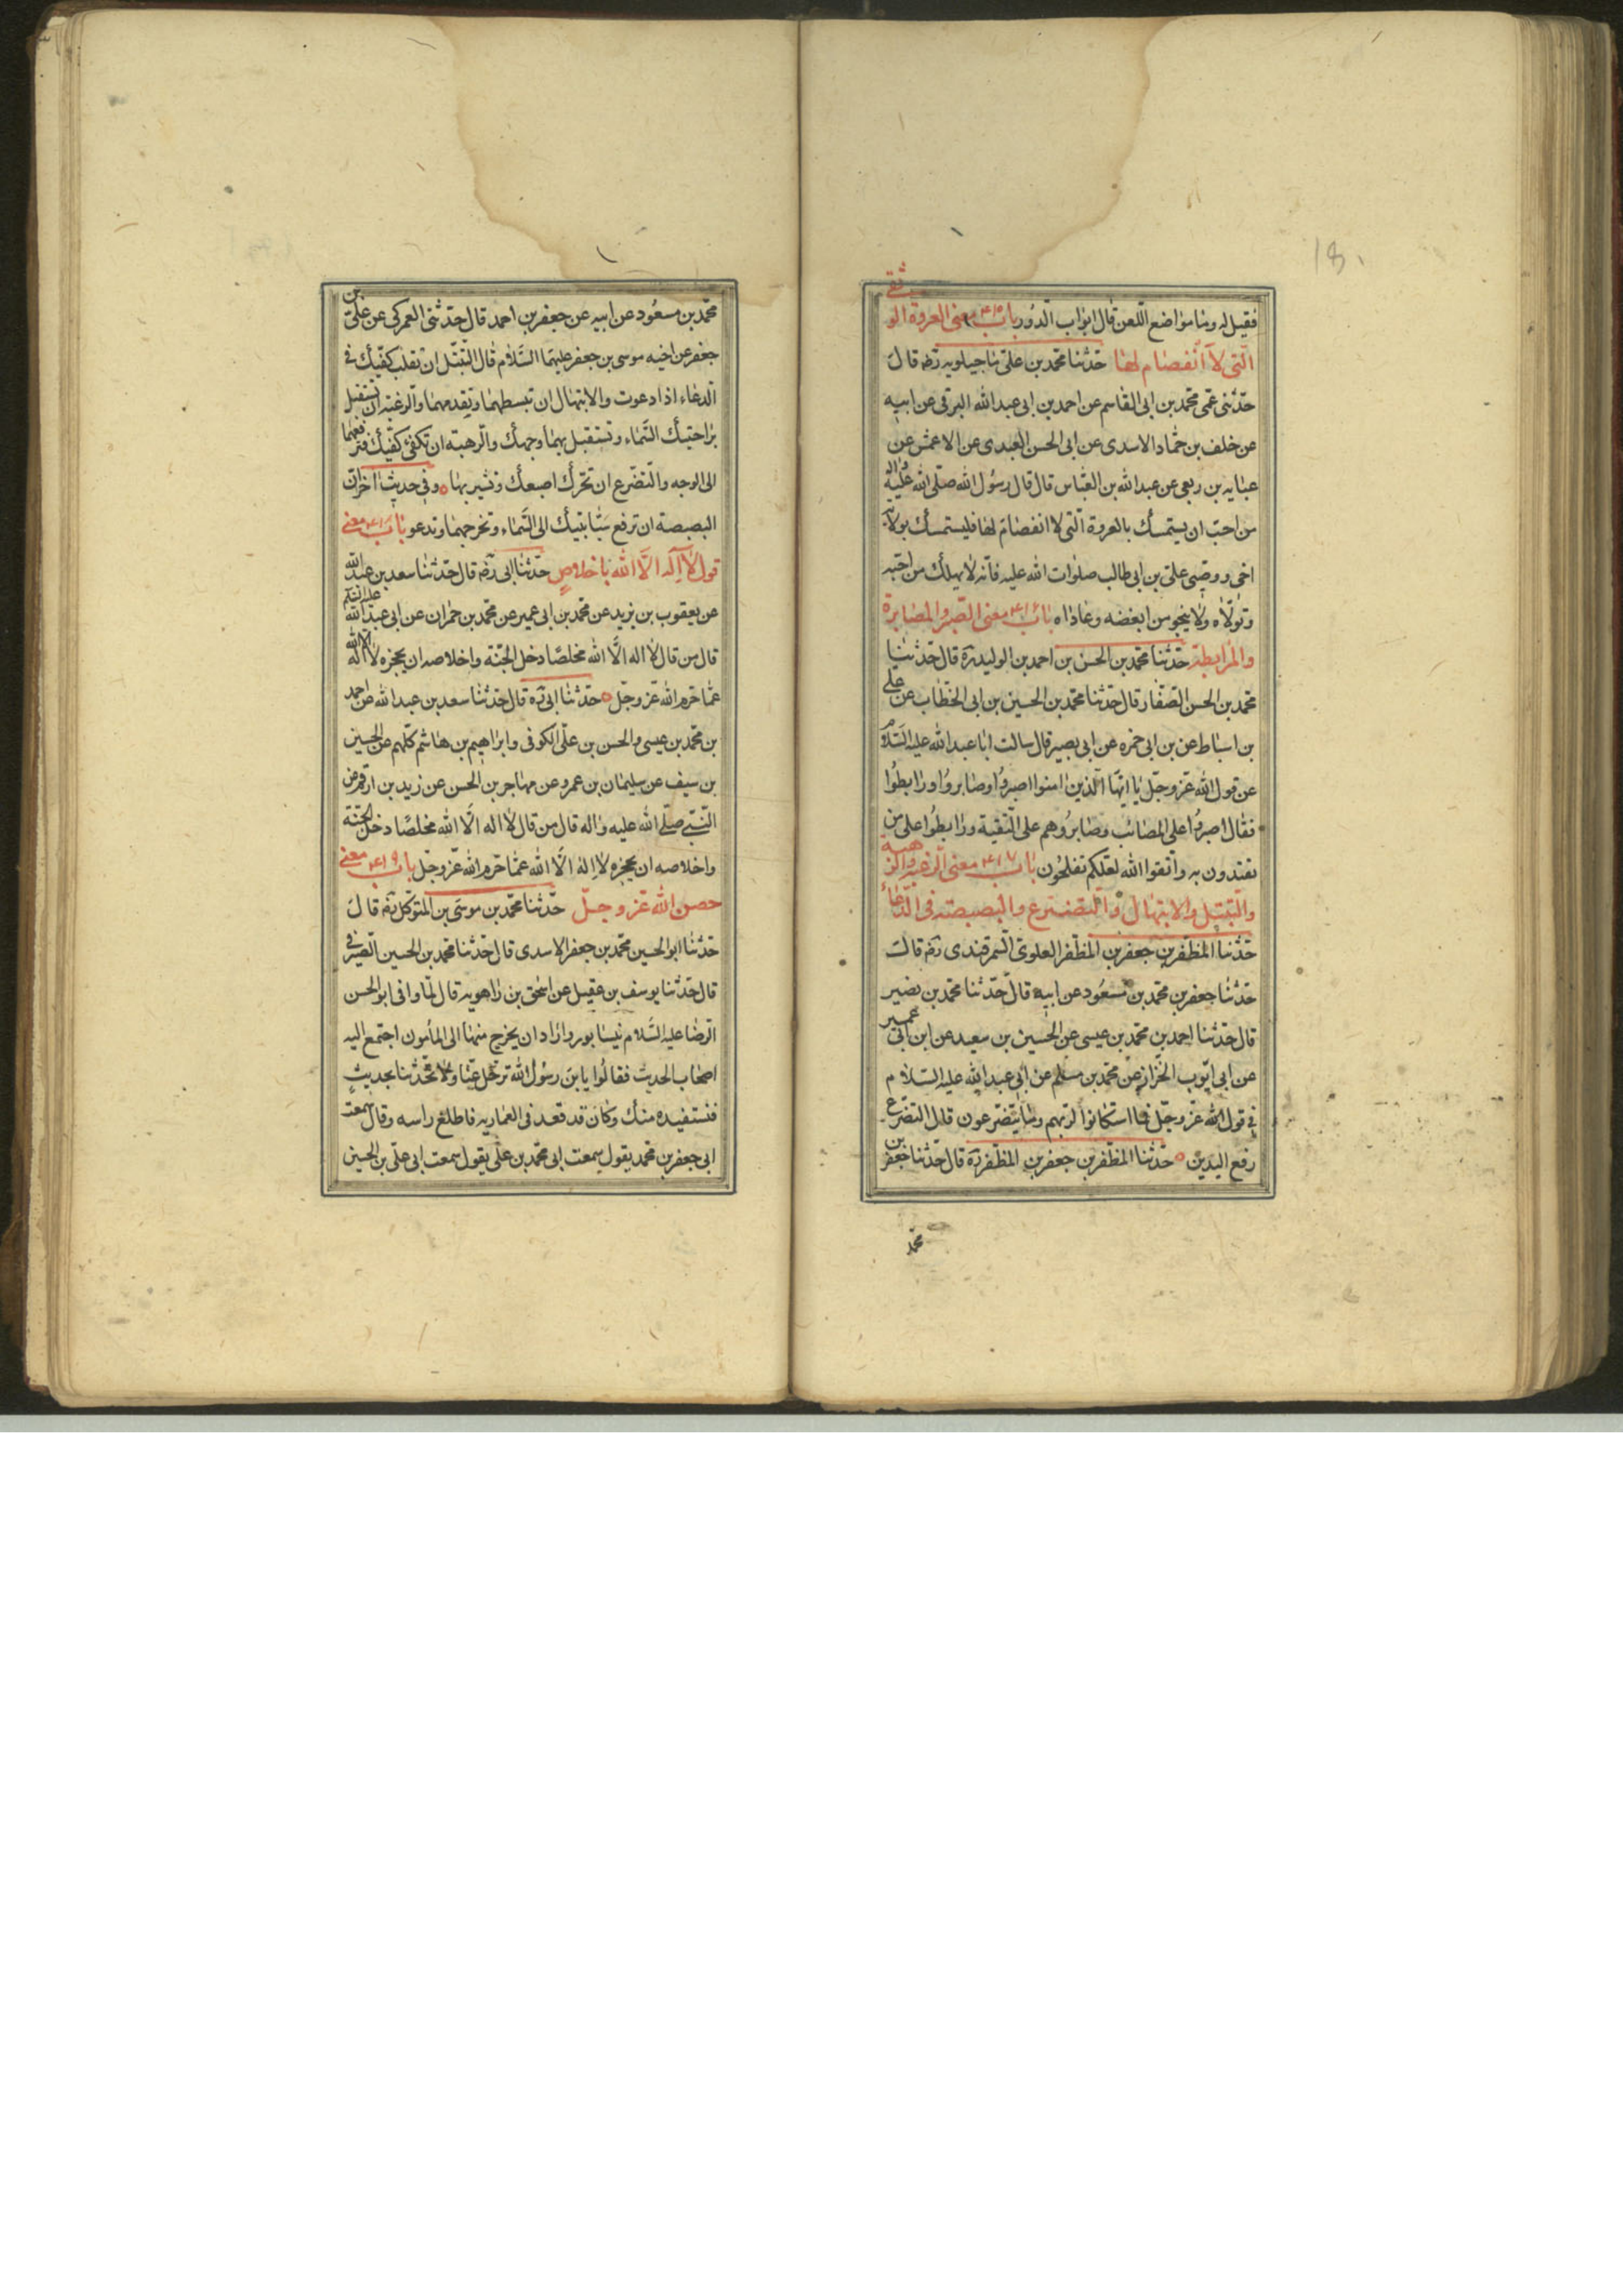 فقيل له وما مواضع اللعن قال ابواب الدور باب ۴۱۵ معنى العروة الوثقى
التى لا انفصام لها حدثنا محمد بن على ماجيلويه رضه قال
حدثنى عمى محمد بن ابى القاسم عن احمد بن ابى عبدالله البرقى عن ابيه
عن خلف بن حماد الاسدى عن ابى الحسن العبدى عن الاعمش عن
عبايه بن ربعى عن عبدالله بن العباس قال قال رسول الله صلى الله عليه واله
من احب ان يستمسك بالعروة التى لا انفصام لها فليستمسك بولاية
اخى ووصيى على بن ابى طالب صلوات الله عليه فانه لا يهلك من احبه
وتولاه ولا ينجو من ابغضه وعاداه باب ۴۱۶ معنى الصبر والمصابرة
والمرابطة حدثنا محمد بن الحسن بن احمد بن الوليد ره قال حدثنا
محمد بن الحسن الصفار قال حدثنا محمد بن الحسين بن ابى الخطاب عن على
بن اسباط عن بن ابى حمزه عن ابى بصير قال سالت ابا عبدالله عليه السلام
عن قول الله عز وجل يا ايها الذين امنوا اصبروا وصابروا ورابطوا
فقال اصبروا على المصائب وصابروهم على التقية ورابطوا على من
تقتدون به واتقوا الله لعلكم تفلحون باب ۴۱۷ معنى الرغبة والرهبة
والتبتل والابتهال والتضرع والبصبصة فى الدعاء
حدثنا المظفر بن جعفر بن المظفر العلوى السمرقندى رضه قال
حدثنا جعفر بن محمد بن مسعود عن ابيه قال حدثنا محمد بن نصير
قال حدثنا احمد بن محمد بن عيسى عن الحسين بن سعيد عن ابن ابى عمير
عن ابى ايوب الخزاز عن محمد بن مسلم عن ابى عبدالله عليه السلام
فى قول الله عز وجل فما استكانوا لربهم وما يتضرعون قال التضرع
رفع اليدين حدثنا المظفر بن جعفر بن المظفر ره قال حدثنا جعفر بن
محمد
محمد بن مسعود عن ابيه عن جعفر بن احمد قال حدثنى العمركى عن على بن
جعفر عن اخيه موسى بن جعفر عليهما السلام قال التبتل ان تقلب كفيك فى
الدعاء اذا دعوت والابتهال ان تبسطهما وتقدمهما والرغبة ان تستقبل
براحتيك السماء وتستقبل بهما وجهك والرهبة ان تكفئ كفيك فترفعهما
الى الوجه والتضرع ان تحرك اصبعك وتشير بها وفى حديث اخر ان
البصبصة ان ترفع سبابتيك الى السماء وتحرجهما وتدعو باب ۴۱۸ معنى
قول لا اله الا الله باخلاص حدثنا ابى رضه قال حدثنا سعد بن عبدالله
عن يعقوب بن يزيد عن محمد بن ابى عمير عن محمد بن حمران عن ابى عبدالله عليه السلم
قال من قال لا اله الا الله مخلصا دخل الجنة واخلاصه ان يحجزه لا اله الا الله
عما حرم الله عز وجل حدثنا ابى ره قال حدثنا سعد بن عبدالله عن احمد
بن محمد بن عيسى والحسن بن على الكوفى وابراهيم بن هاشم كلهم عن الحسين
بن سيف عن سليمان بن عمرو عن مهاجر بن الحسن عن زيد بن ارقم عن
النبى صلى الله عليه واله قال من قال لا اله الا الله مخلصا دخل الجنة
واخلاصه ان يحجزه لا اله الا الله عما حرم الله عز وجل باب ۴۱۹ معنى
حصن الله عز وجل حدثنا محمد بن موسى بن المتوكل رضه قال
حدثنا ابو الحسين محمد بن جعفر الاسدى قال حدثنا محمد بن الحسين الصيرفى
قال حدثنا يوسف بن عقيل عن اسحق بن راهويه قال لما وافى ابو الحسن
الرضا عليه السلام نيسابور واراد ان يخرج منها الى المأمون اجتمع اليه
اصحاب الحديث فقالوا يا بن رسول الله ترحل عنا ولا تحدثنا بحديث
فنستفيده منك وكان قد قعد فى العماريه فاطلع راسه وقال سمعت
ابى جعفر بن محمد يقول سمعت ابى محمد بن على يقول سمعت ابى على بن الحسين